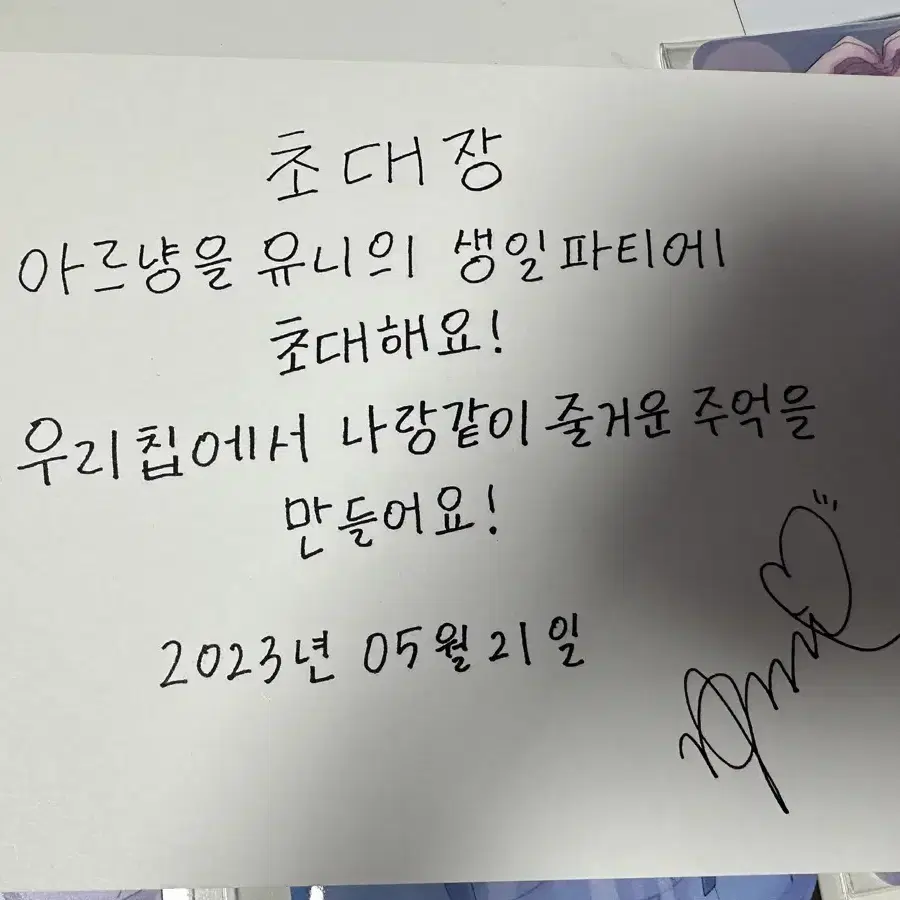 초대장
아르냥을 유니의 생일파티에
초대해요!
우리집에서 나랑같이 줄거운 주억을
만들어요!
2023년 05월 21일